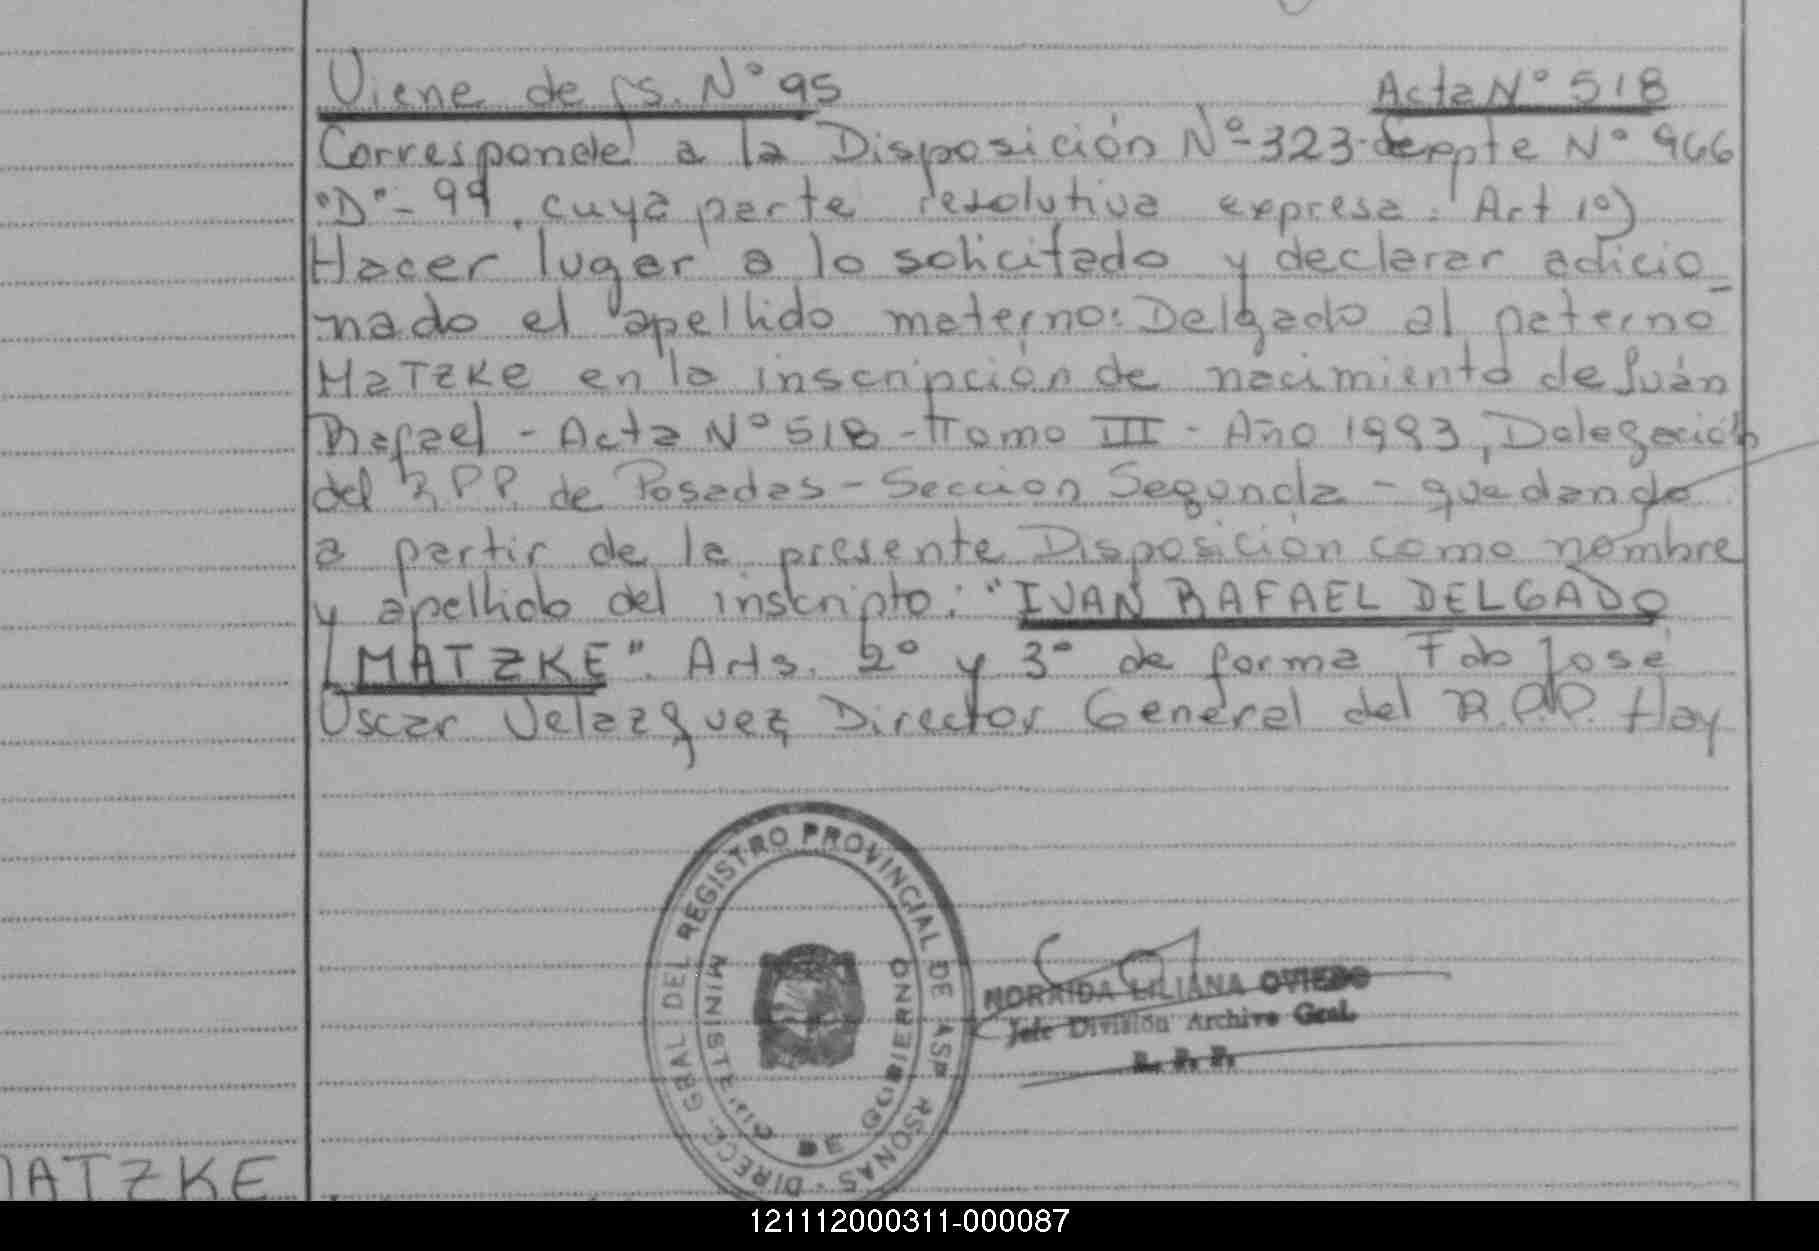 Viene de fs. N° 95 Acta N° 518
Corresponde a la Disposición N° 323- expte N° 966
"D"- 99, cuya parte resolutiva expresa: Art 1°)
Hacer lugar a lo solicitado y declarar adicio_
nado el apellido materno: Delgado al paterno
MATZKE en la inscripción de nacimiento de Iván
Rafael - Acta N° 518 - Tomo III - Año 1993, Delegación
del R.P.P. de Posadas - Sección Segunda - quedando
a partir de la presente Disposición como nombre
y apellido del inscripto: "IVAN RAFAEL DELGADO
MATZKE". Arts. 2° y 3° de forma Fdo José
Oscar Velazquez Director General del R.P.P. Hay
DIRECC. GRAL DEL REGISTRO PROVINCIAL DE
MINISTERIO DE GOBIERNO
NORAIDA LILIANA OVIEDO
Jefe División Archivo Gral.
R. P. P.
MATZKE
121112000311-000087